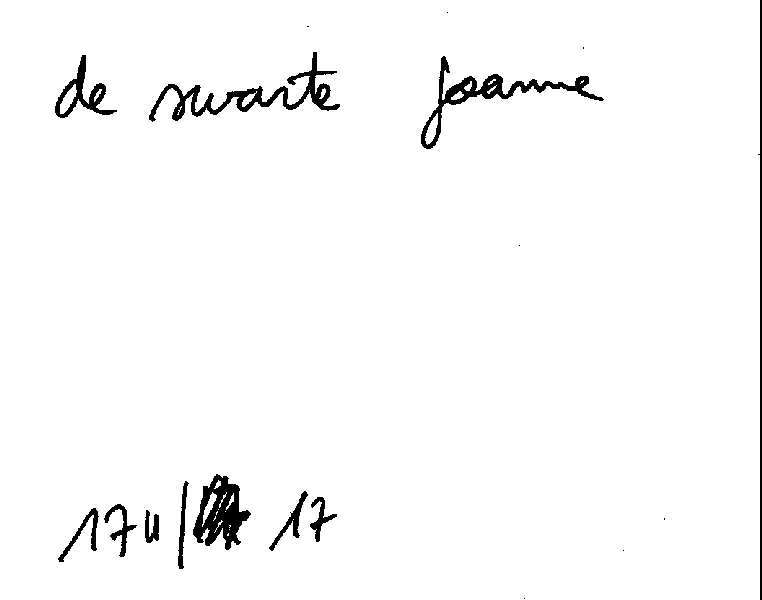 de swarte joanne
17u/ 17